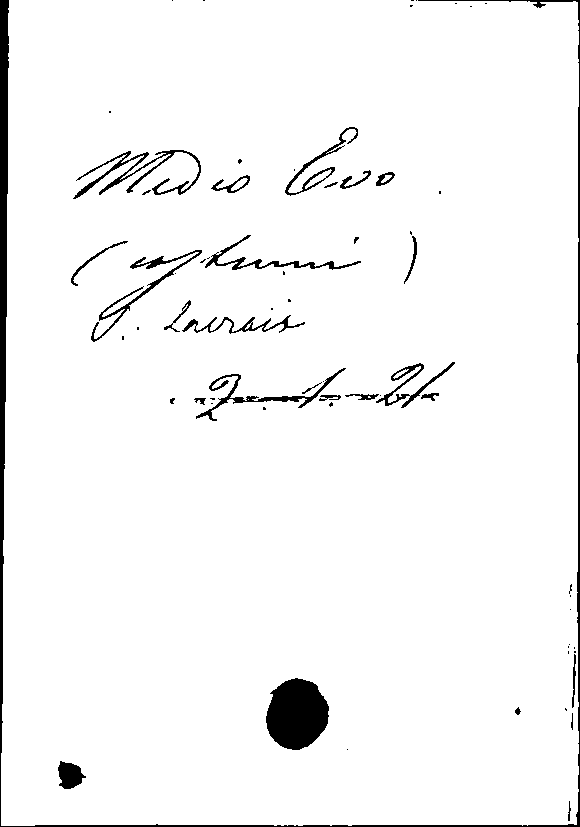 Medio Evo
(costumi)
P. Lacroix
2. 1. 21